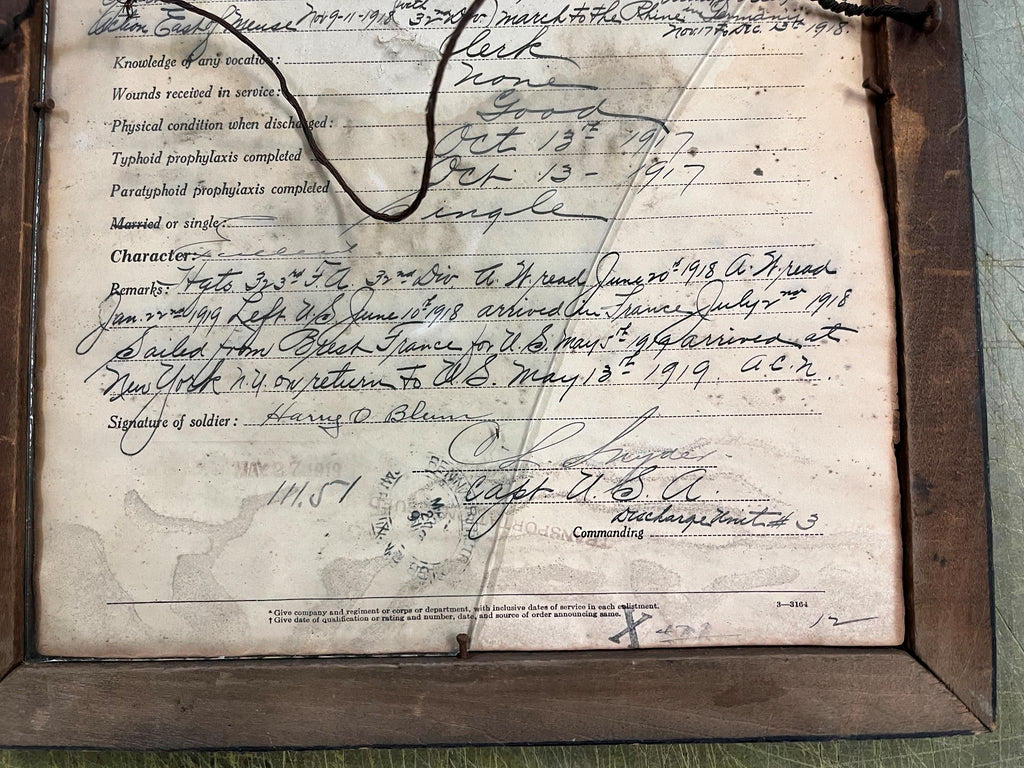 Action East of Meuse Nov 9-11-1918 with 32nd Div. march to the Rhine in Germany
Nov 17 to Dec. 13th 1918.
Knowledge of any vocation: Clerk
Wounds received in service: None
Physical condition when discharged: Good
Typhoid prophylaxis completed Oct 13th 1917
Paratyphoid prophylaxis completed Oct 13 - 1917
Married or single: Single
Character: Excellent
Remarks: Hqts 323rd F.A. 32nd Div A.W. read June 20th 1918 A.W. read
Jan. 22nd 1919 Left U.S. June 10th 1918 arrived in France July 2nd 1918
Sailed from Brest France for U.S. May 5th 1919 arrived at
New York N.Y. on return to U.S. May 13th 1919 A.C.N.
Signature of soldier: Harry O Blum
C L Snyder
MAY 27 1919
111.51
Capt U.S.A.
Discharge Unit # 3
Commanding
* Give company and regiment or corps or department, with inclusive dates of service in each enlistment.
† Give date of qualification or rating and number, date, and source of order announcing same.
3—3164
X
12